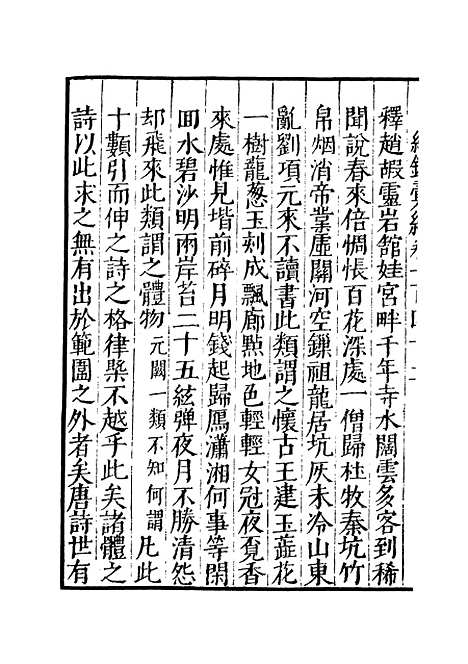 釋趙嘏靈岩舘娃宮畔千年寺水闊雲多客到稀
聞說春來倍惆悵百花深處一僧歸杜牧秦坑竹
帛烟消帝業虛關河空鏁祖龍居坑灰未冷山東
亂劉項元來不讀書此類謂之懷古王建玉蘂花
一樹龍蔥玉刻成飄廊㸃地色輕輕女冠夜覔香
來處惟見堦前碎月明錢起歸鴈瀟湘何事等閑
囬水碧沙明兩岸苔二十五絃彈夜月不勝清怨
却飛來此類謂之體物元闕一類不知何謂凡此
十數引而伸之詩之格律槩不越乎此矣諸體之
詩以此求之無有出於範圍之外者矣唐詩世有